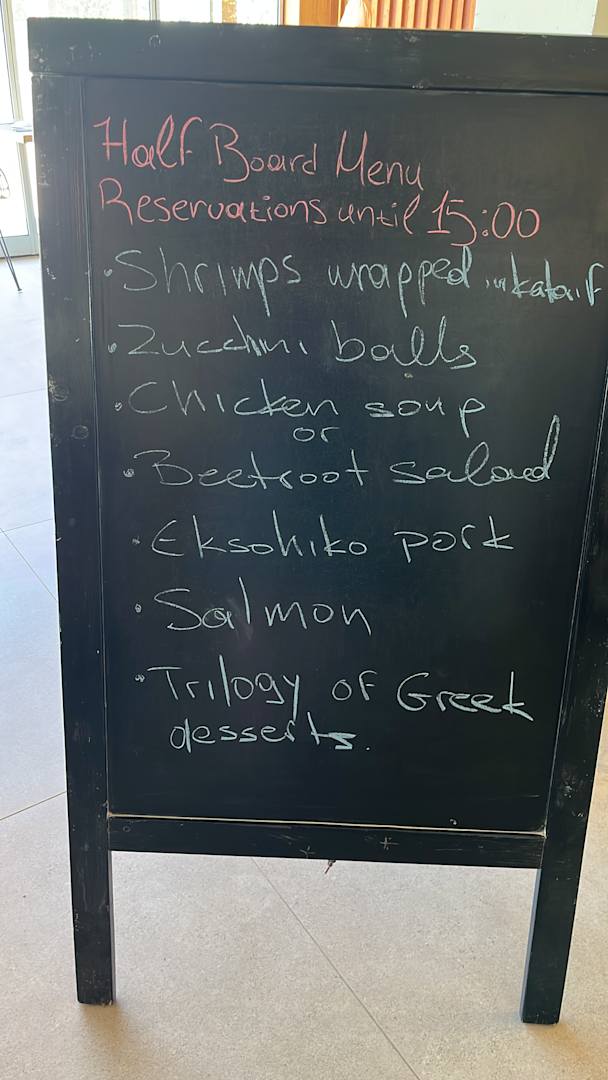 Half Board Menu
Reservations until 15:00
• Shrimps wrapped in kataif
• Zucchini balls
• Chicken soup
or
• Beetroot salad
• Eksohiko pork
• Salmon
• Trilogy of Greek
desserts.